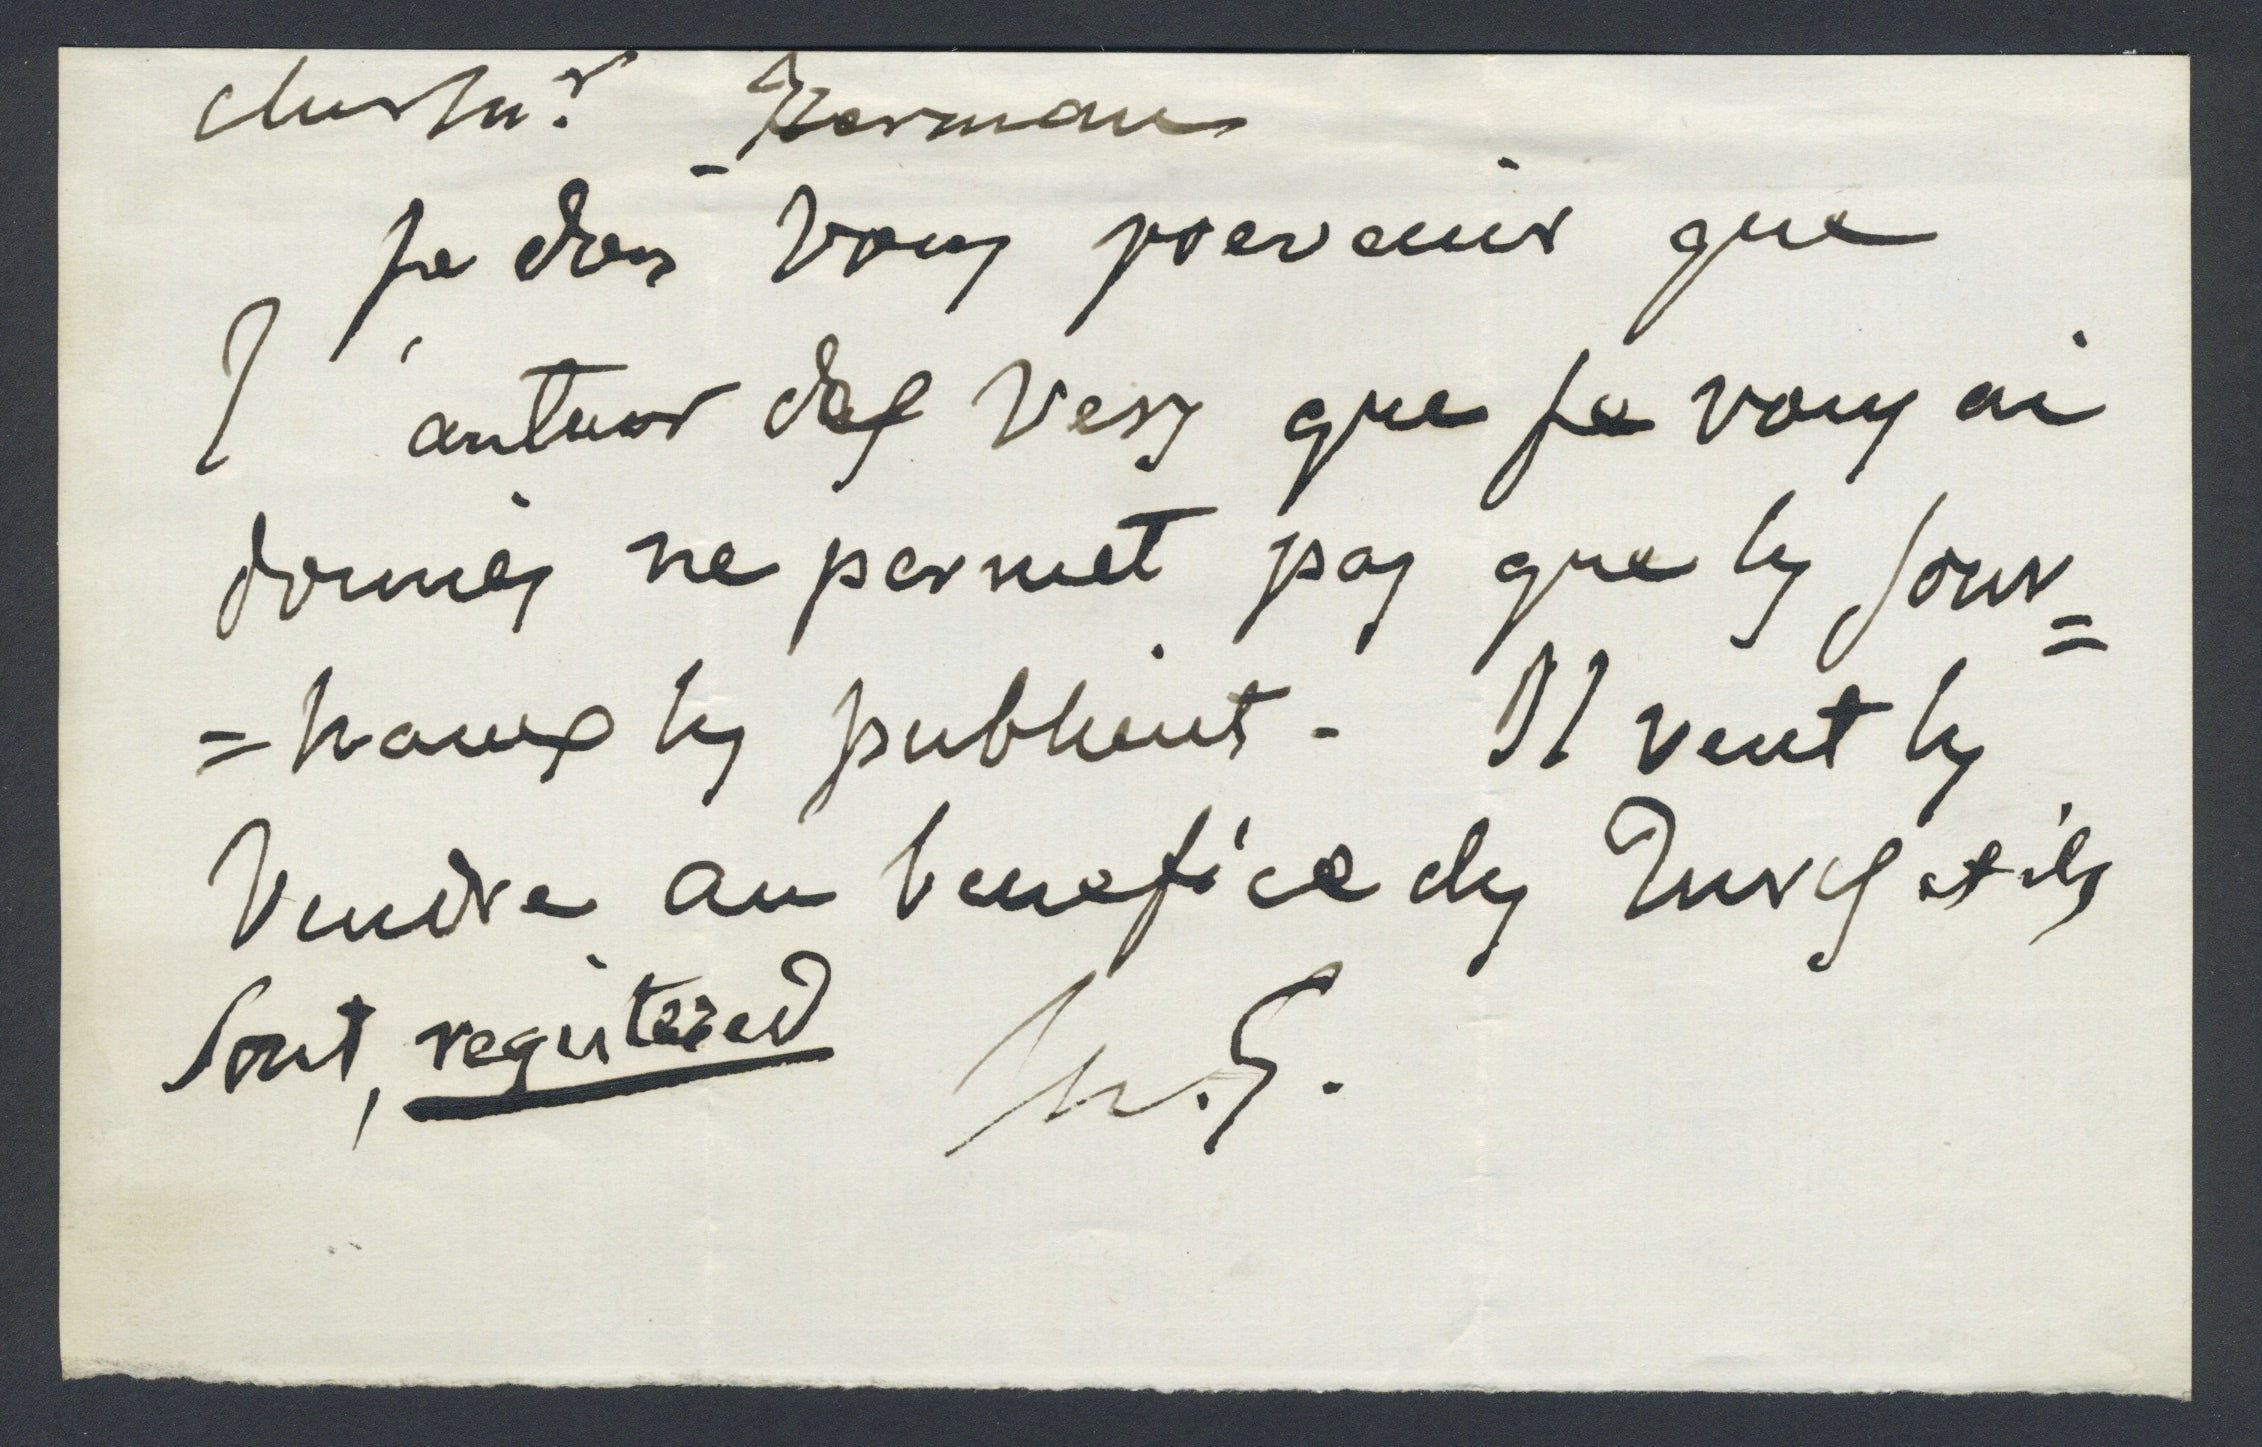 cher Mr Herman
Je dois vous prevenir que
l'auteur des Vers que je vous ai
donnés ne permet pas que les Jour=
=naux les publient - Il veut les
Vendre au benefice des Turcs et ils
sont, registered
W.G.